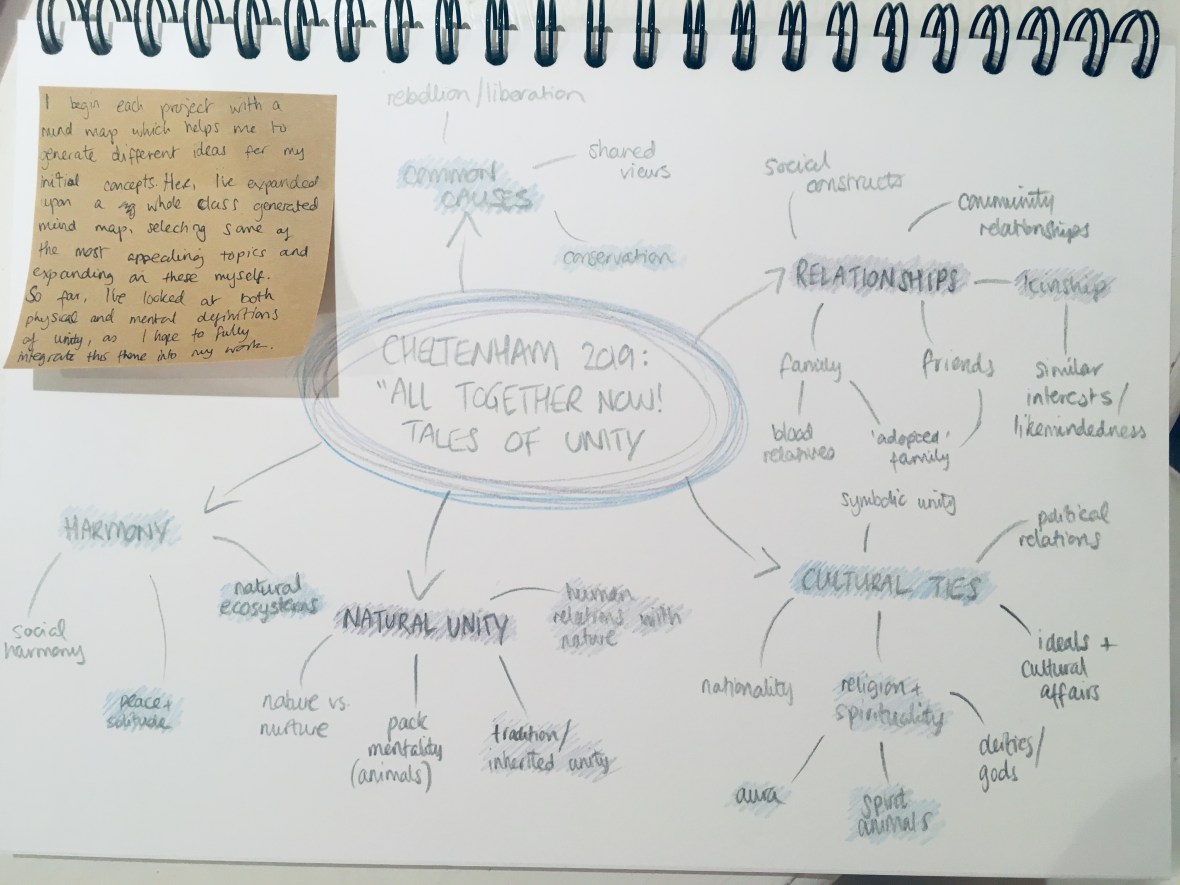 I begin each project with a
mind map which helps me to
generate different ideas for my
initial concepts. Here, I've expanded
upon a whole class generated
mind map, selecting some of
the most appealing topics and
expanding on these myself.
So far, I've looked at both
physical and mental definitions
of unity, as I hope to fully
integrate this theme into my work.
rebellion/liberation
COMMON
CAUSES
shared
views
conservation
social
constructs
community
relationships
RELATIONSHIPS
kinship
family
friends
similar
interests/
likemindedness
blood
relatives
'adopted'
family
CHELTENHAM 2019:
"ALL TOGETHER NOW!
TALES OF UNITY
HARMONY
social
harmony
peace +
solitude
natural
ecosystems
NATURAL UNITY
human
relations with
nature
nature vs.
nurture
pack
mentality
(animals)
tradition/
inherited unity
symbolic unity
political
relations
CULTURAL TIES
ideals +
cultural
affairs
nationality
religion +
spirituality
deities/
gods
aura
spirit
animals